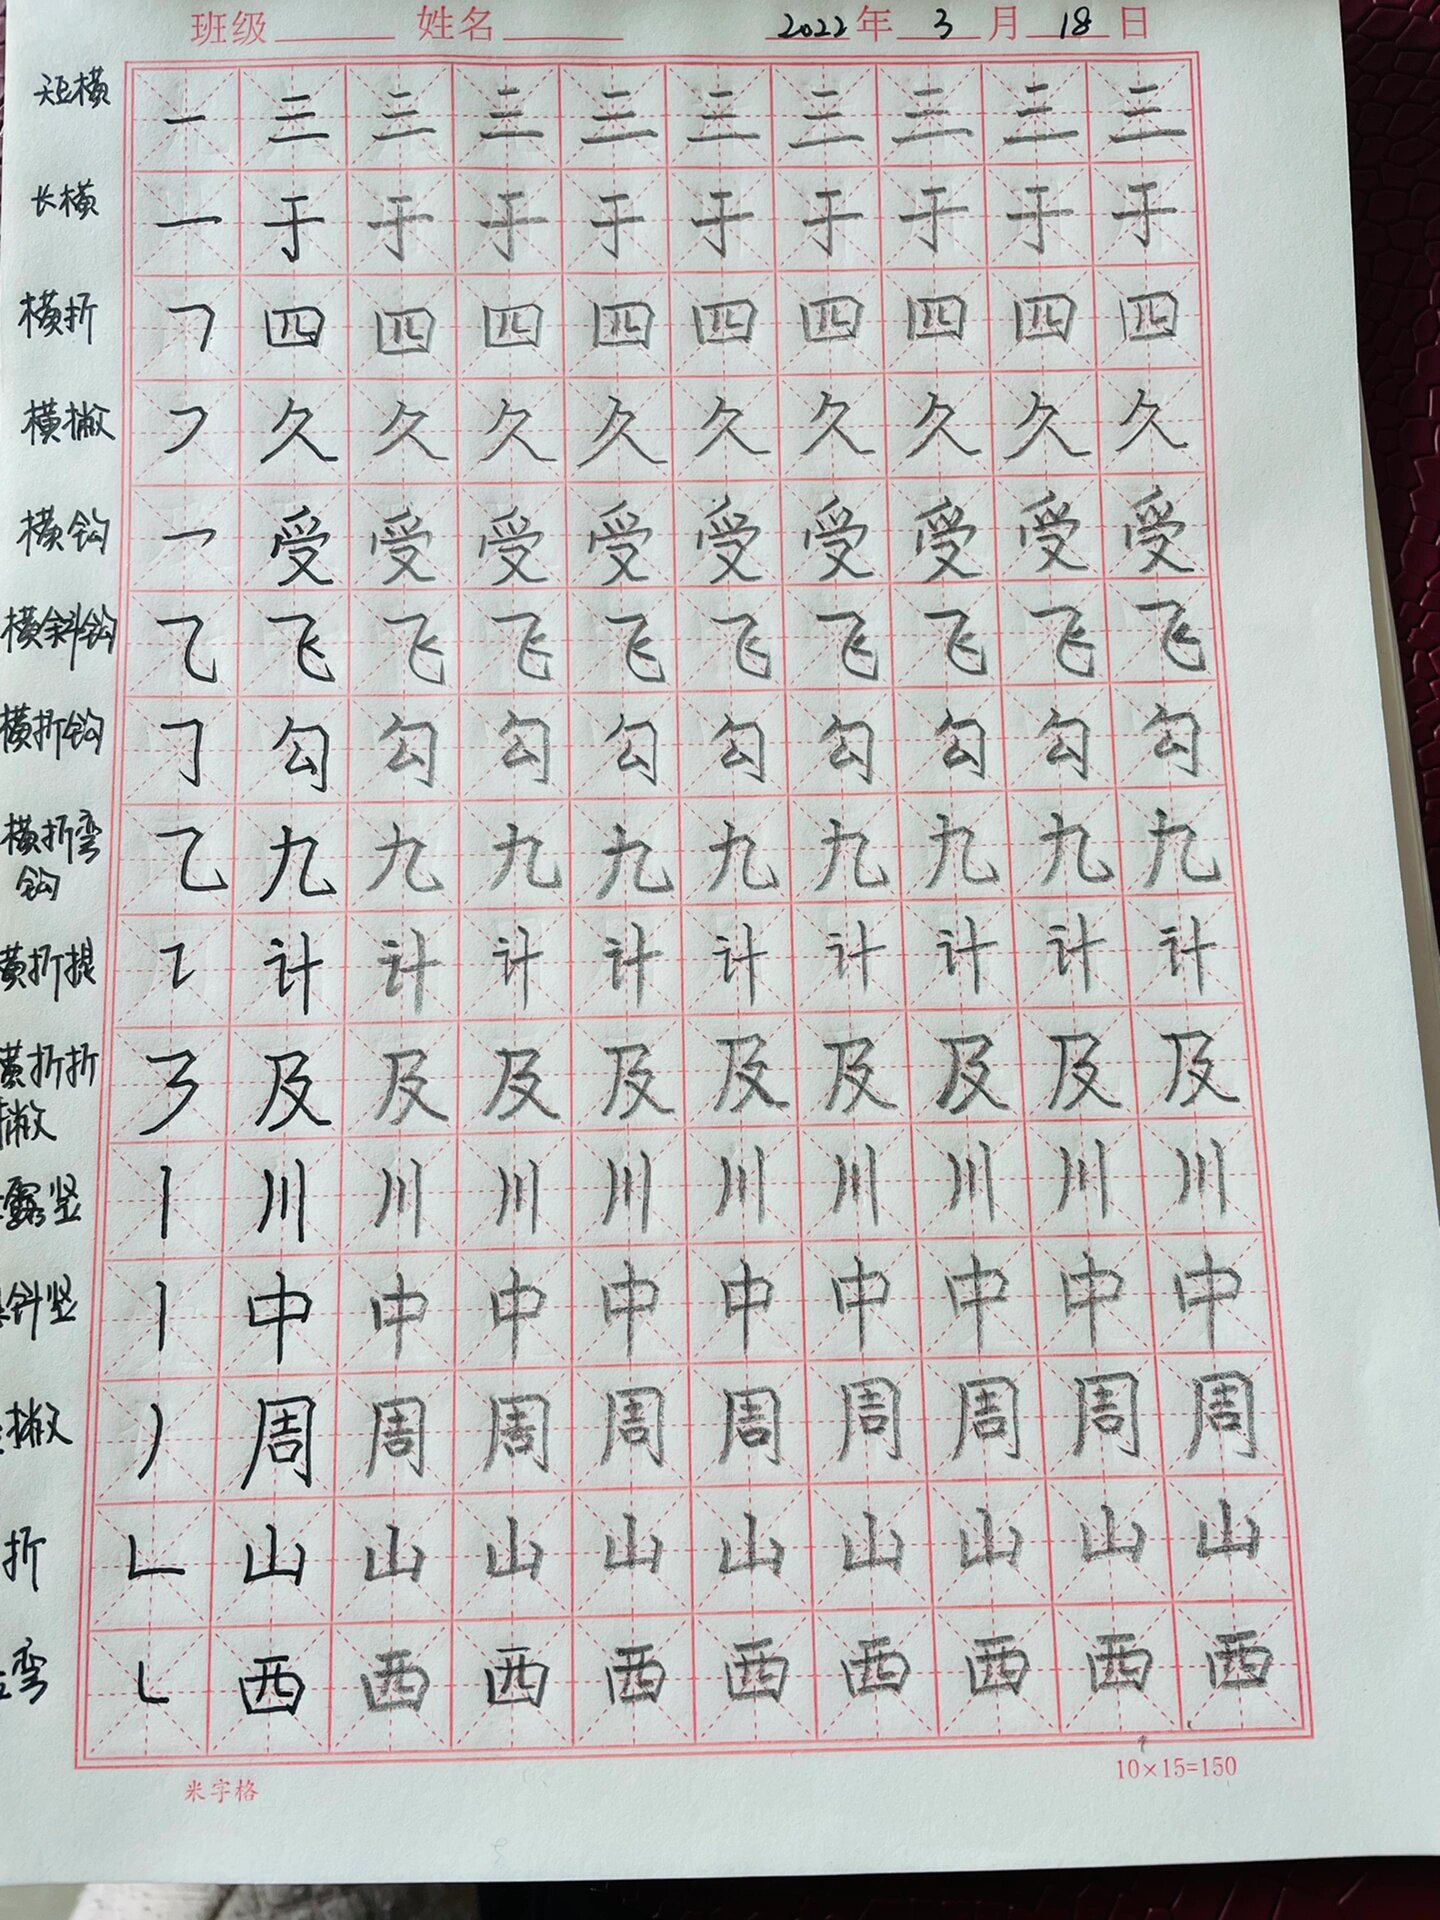 班级 姓名 2022年3月18日
短横 一 三 三 三 三 三 三 三 三 三
长横 一 于 于 于 于 于 于 于 于 于
横折 𠃍 四 四 四 四 四 四 四 四 四
横撇 ㇇ 久 久 久 久 久 久 久 久 久
横钩 乛 受 受 受 受 受 受 受 受 受
横斜钩 ⺄ 飞 飞 飞 飞 飞 飞 飞 飞 飞
横折钩 𠃌 勾 勾 勾 勾 勾 勾 勾 勾 勾
横折弯 乙 九 九 九 九 九 九 九 九 九
钩
横折提 ㇊ 计 计 计 计 计 计 计 计 计
横折折 ㇋ 及 及 及 及 及 及 及 及 及
撇
露竖 丨 川 川 川 川 川 川 川 川 川
针竖 丨 中 中 中 中 中 中 中 中 中
撇 丿 周 周 周 周 周 周 周 周 周
折 𠃊 山 山 山 山 山 山 山 山 山
弯 ㇄ 西 西 西 西 西 西 西 西 西
米字格 10×15=150